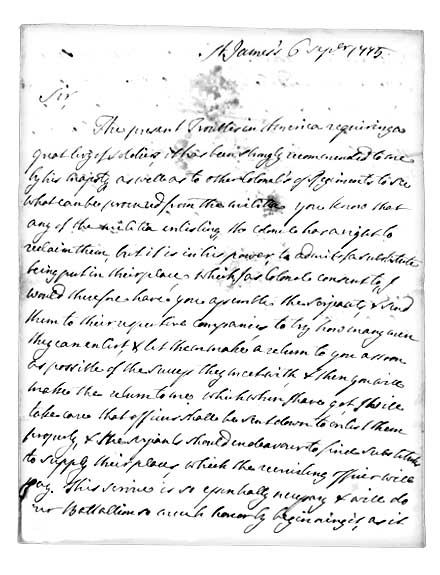 St James's 6 Sepr 1775
Sir,
The present Troubles in America requiring a
great levy of soldiers, it has been strongly recommended to me
by his Majesty as well as to other Colonels of Regiments to see
what can be procured from the militia you know that
any of the militia enlisting the Colonel has a right to
reclaim them, but it is in his power to admit of a substitute
being put in their place which I as Colonel consent to, I
would therefore have you assemble the serjeants, & send
them to their respective companies to try how many men
they can enlist, & let them make a return to you as soon
as possible of the success they meet with, & then you will
make the return to me which when I have got, I will
take care that officers shall be sent down to enlist them
properly, & the serjeants should endeavour to find substitutes
to supply their places which the recruiting officer will
pay. This service is so essentially necessary & will do
our Battalion so much honor by beginning it, as it